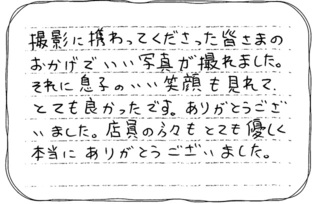 撮影に携わってくださった皆さまの
おかげでいい写真が撮れました。
それに息子のいい笑顔も見れて、
とても良かったです。ありがとうござ
いました。店員の方々もとても優しく
本当にありがとうございました。